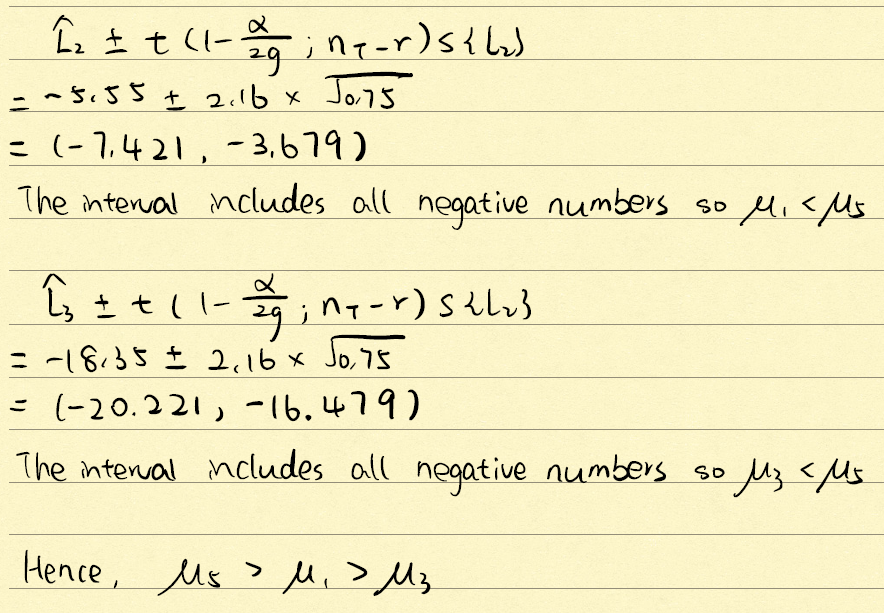 L̂₂ ± t(1-α/2g ; n_T-r) s{L₂}
= -5.55 ± 2.16 × √0.75
= (-7.421, -3.679)
The interval includes all negative numbers so μ₁ < μ₅
L̂₃ ± t(1-α/2g ; n_T-r) s{L₂}
= -18.35 ± 2.16 × √0.75
= (-20.221, -16.479)
The interval includes all negative numbers so μ₃ < μ₅
Hence, μ₅ > μ₁ > μ₃